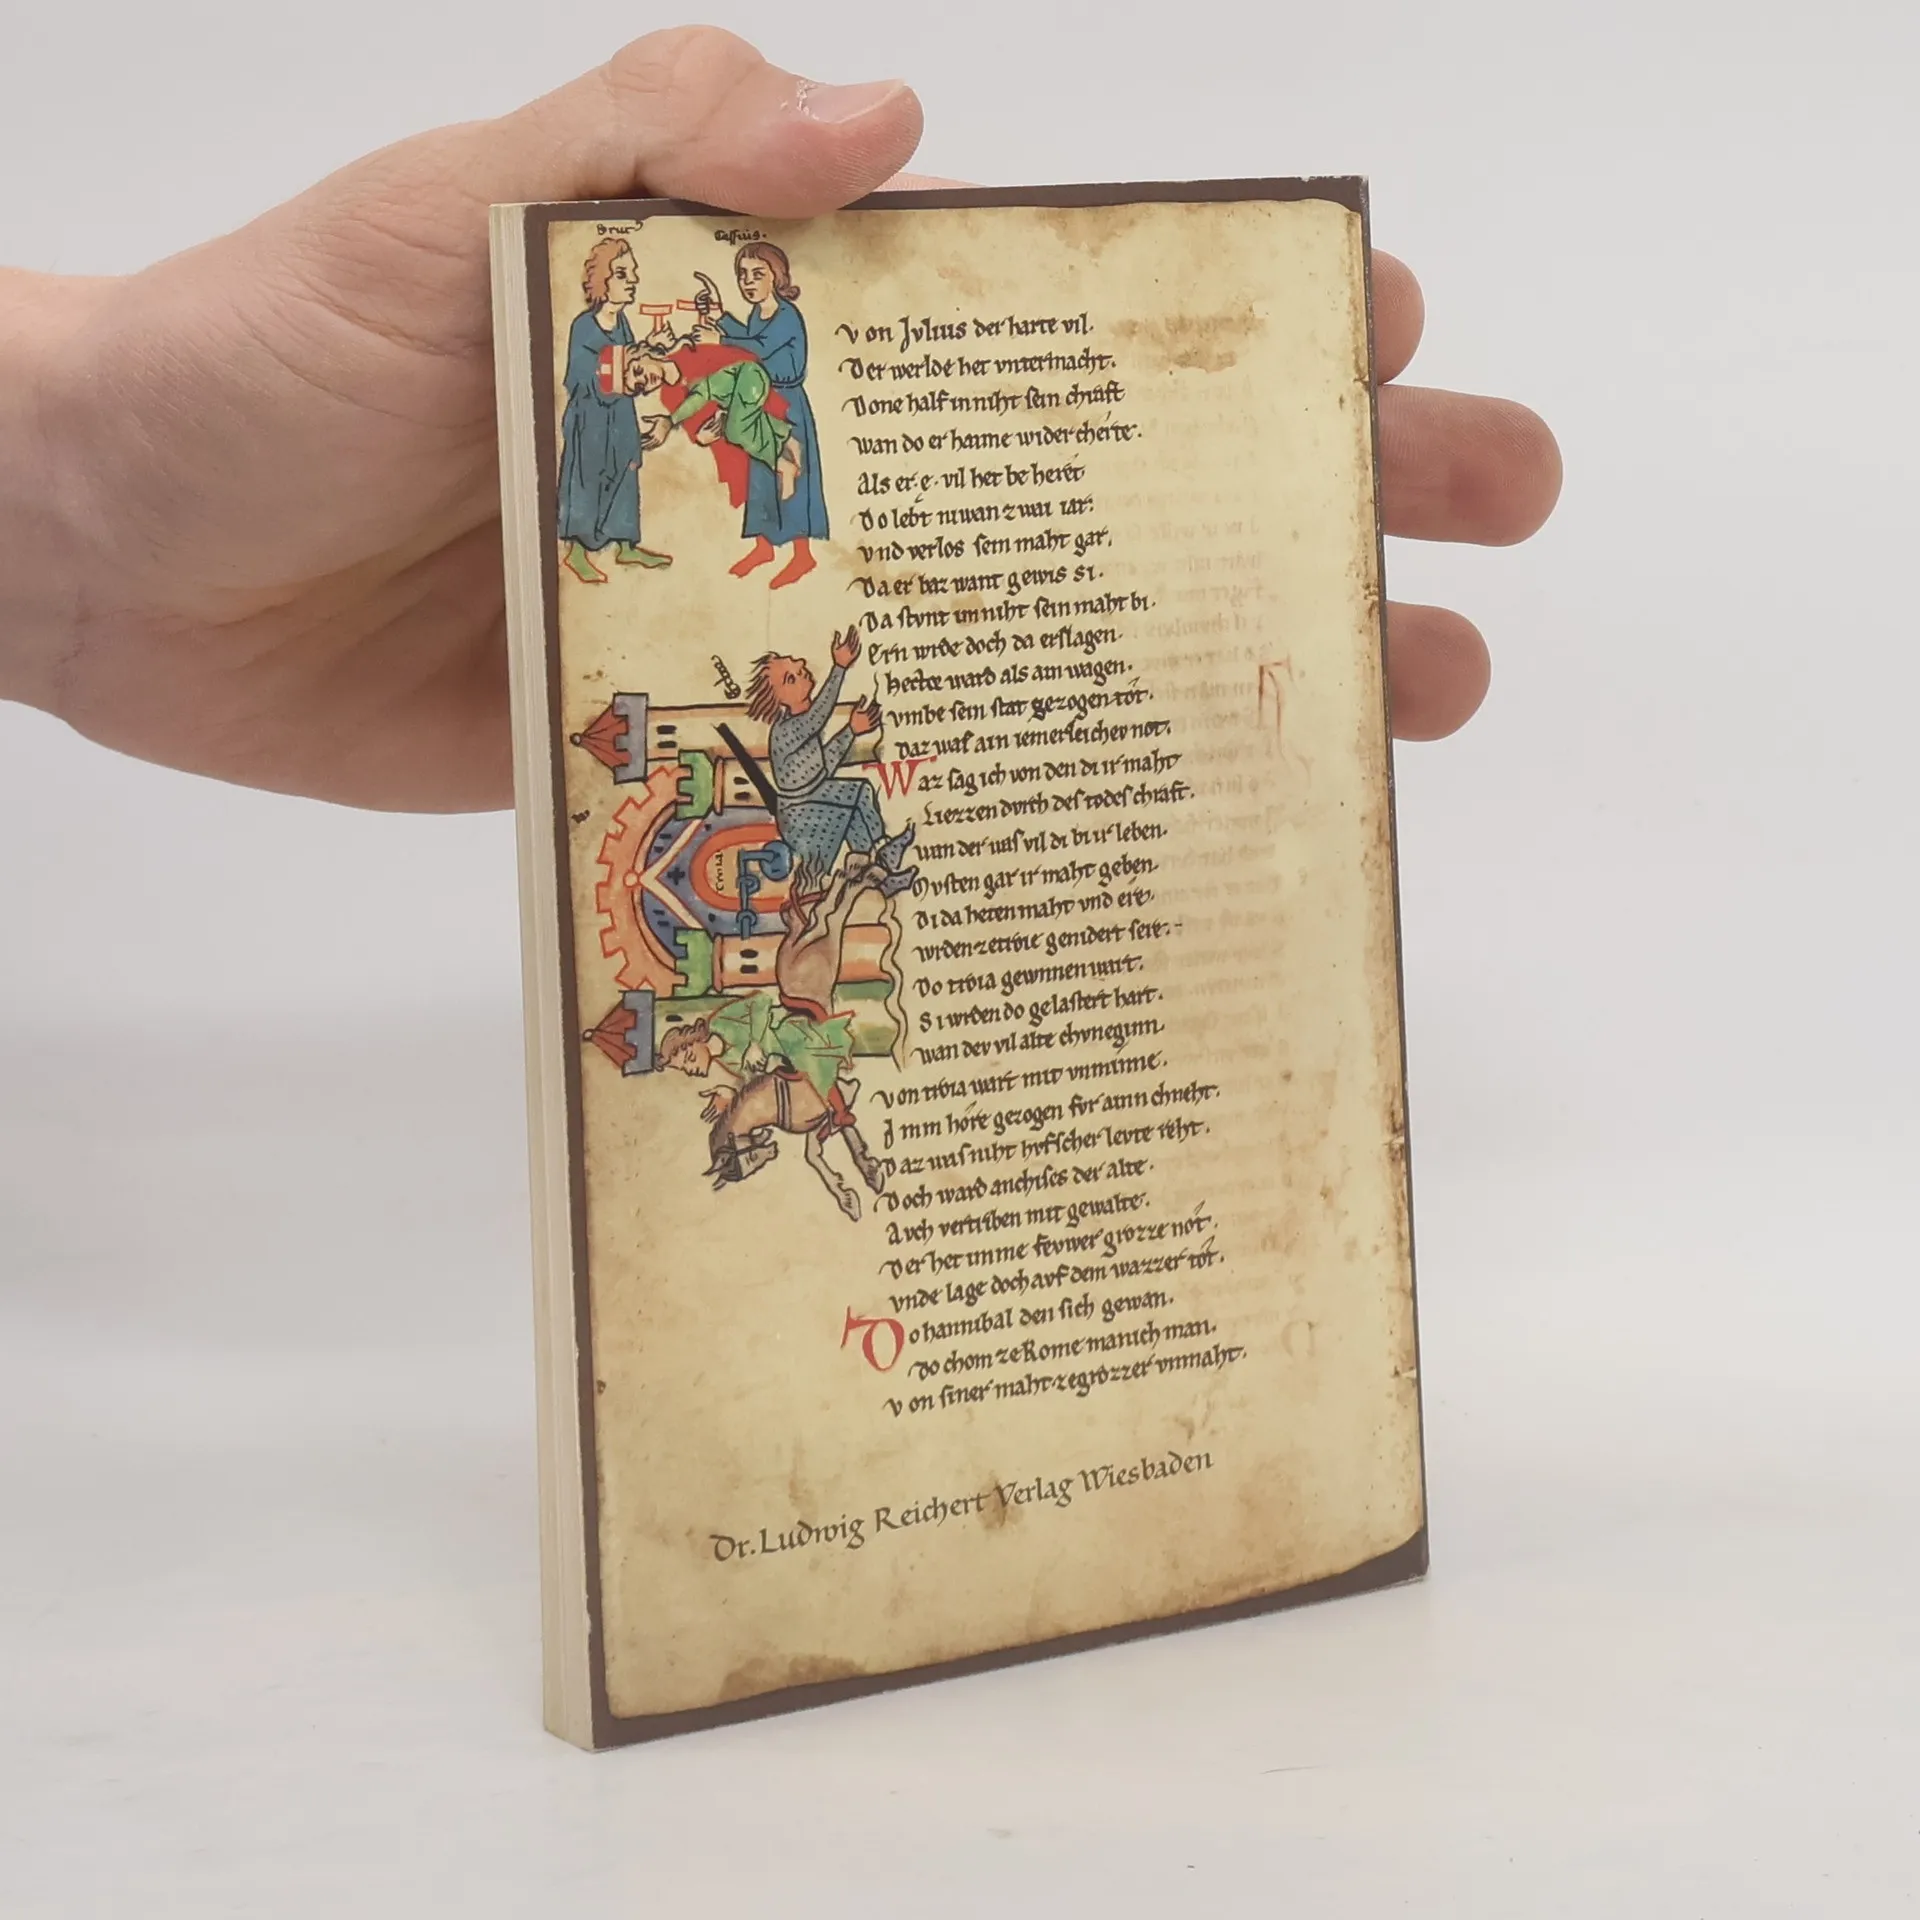 Brut9
Cassius.
Von Jvlius der harte vil.
Der werlde het vntermacht.
Done half in niht sein chraft
wan do er haime widercherte.
Als er. e. vil het be heret
Do lebt niwan zwai iar.
vnd verlos sein maht gar.
Da er baz want gewis si.
Da stvnt im niht sein maht bi.
Ern wrde doch da erslagen.
hector ward als am wagen.
vmbe sein stat gezogen tot.
daz was ain iemerleichev not.
Waz sag ich von den di ir maht
Liezzen dvrch des todes chraft.
wan der was vil di bi ir leben.
Mvsten gar ir maht geben.
Di da heten maht vnd ere.
wrden ze troie genidert sere.
Do troia gewnnen wart.
Si wrden do gelastert hart.
wan dev vil alte chvneginn.
Von troia wart mit vnminne.
Jmm hore gezogen fvr ainn chneht.
Daz was niht hvfscher levte reht.
Doch ward anchises der alte.
Avch vertriben mit gewalte.
Der het imme fevwer grozze not.
vnde lage doch avf dem wazzer tot.
Do hannibal den sich gewan.
do chom ze Rome manich man.
von siner maht ze grozzer vnmaht.
Troia
Dr. Ludwig Reichert Verlag Wiesbaden